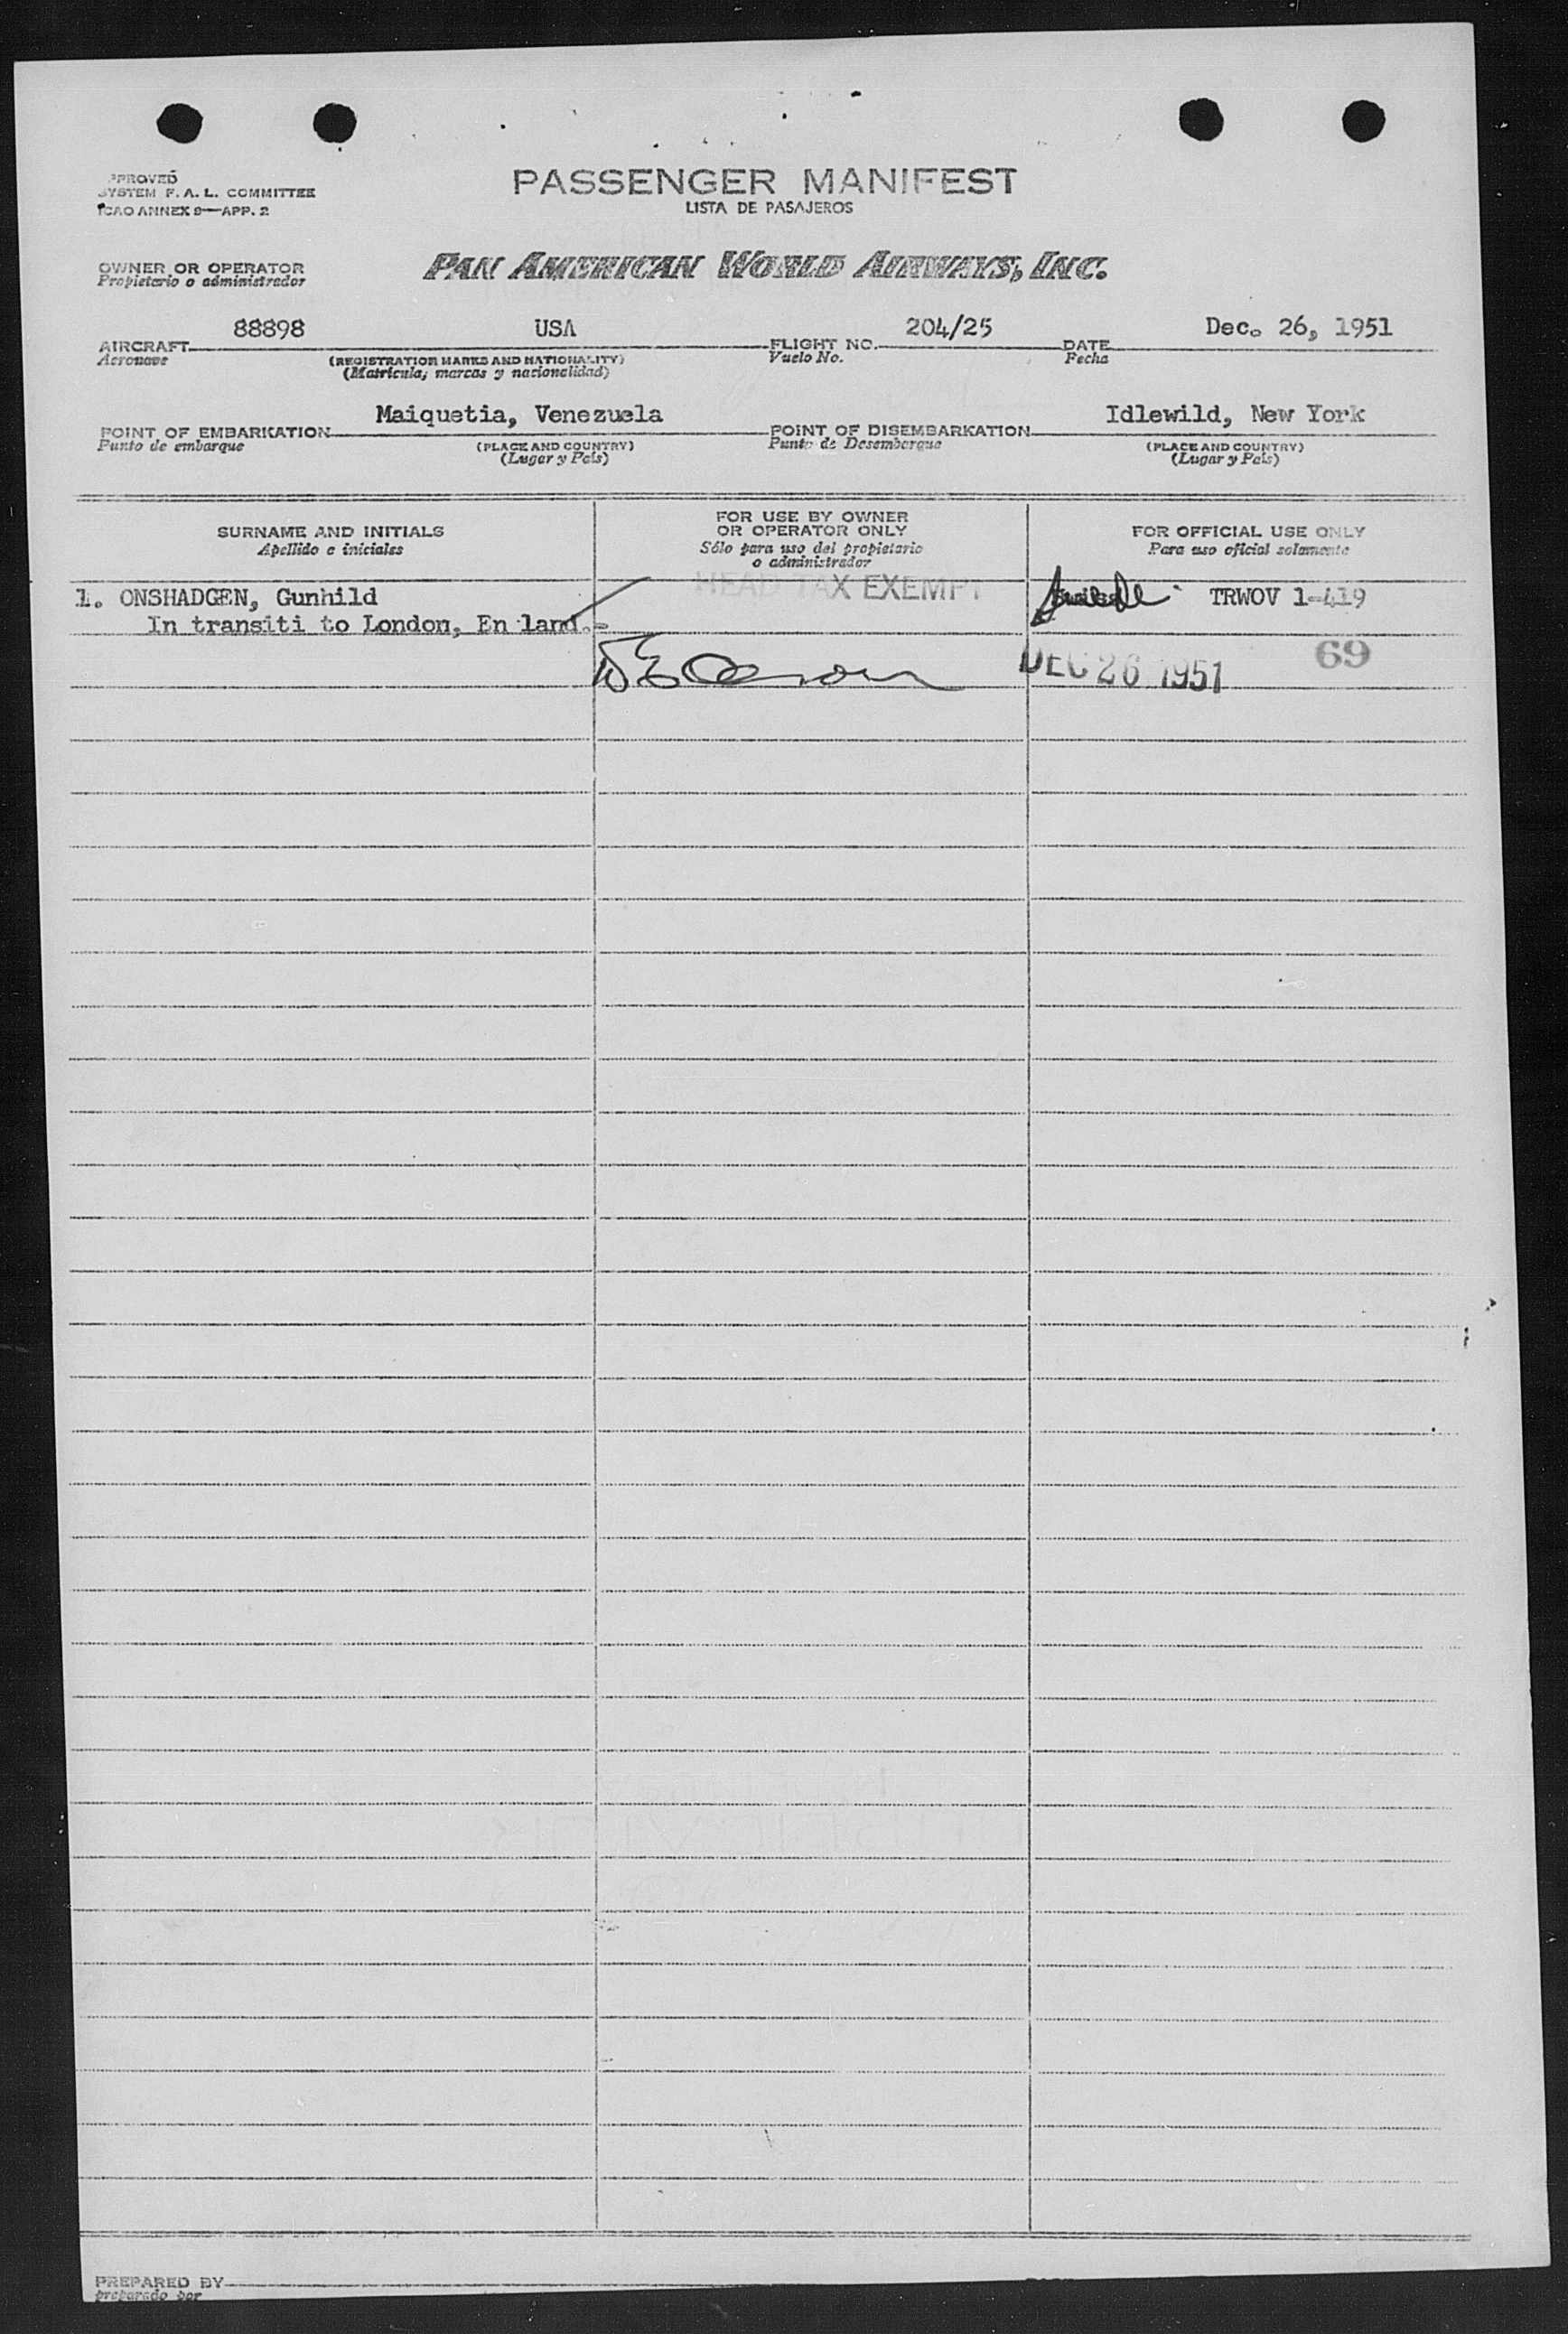 PPROVED
SYSTEM F. A. L. COMMITTEE
ICAO ANNEX 9—APP. 2
PASSENGER MANIFEST
LISTA DE PASAJEROS
OWNER OR OPERATOR
Propietario o administrador
PAN AMERICAN WORLD AIRWAYS, INC.
AIRCRAFT 88898 USA
Aeronave
(REGISTRATION MARKS AND NATIONALITY)
(Matrícula, marcas y nacionalidad)
FLIGHT NO. 204/25
Vuelo No.
DATE Dec. 26, 1951
Fecha
POINT OF EMBARKATION Maiquetia, Venezuela
Punto de embarque
(PLACE AND COUNTRY)
(Lugar y País)
POINT OF DISEMBARKATION Idlewild, New York
Punto de Desembarque
(PLACE AND COUNTRY)
(Lugar y País)
SURNAME AND INITIALS
Apellido e iniciales
FOR USE BY OWNER
OR OPERATOR ONLY
Sólo para uso del propietario
o administrador
FOR OFFICIAL USE ONLY
Para uso oficial solamente
1. ONSHADGEN, Gunhild
In transiti to London, En land.
HEAD TAX EXEMPT
TRWOV 1-419
DEC 26 1951
69
PREPARED BY
preparado por